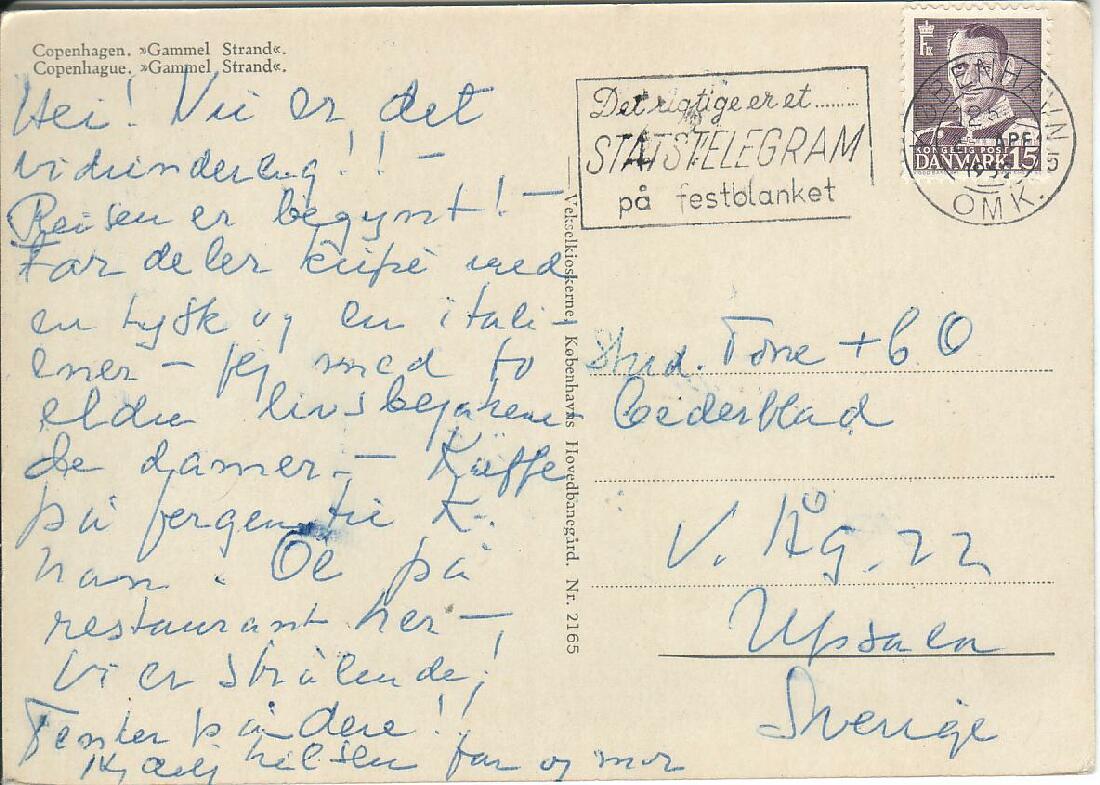 Copenhagen. »Gammel Strand«.
Copenhague. »Gammel Strand«.
Hei! Nu er det
vidunderlig!! –
Reisen er begynt! –
Far deler kupé med
en tysk og en itali-
ener – jeg med to
eldre livsbejaken-
de damer. – Kaffe
på fergen til K.
havn. Öl på
restaurant her –
Vi er strålende!
Tenker på dere!!
hilsen far og mor
Vekselkioskerne, Københavns Hovedbanegård. Nr. 2165
Det rigtige er et.........
STATSTELEGRAM
på festblanket
KØBENHAVN
OMK.
KONGELIG POST
DANMARK 15
Stud. Tone + C O
Cederblad
V. Åg. 22
Upsala
Sverige